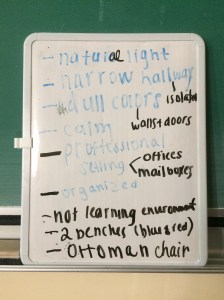 - natural light
- narrow hallway
isolated
- dull colors
walls + doors
- calm
- proffesional
selling
offices
mailboxes
- organized
- not learning environment
- 2 benches (blue & red)
- Ottoman chair